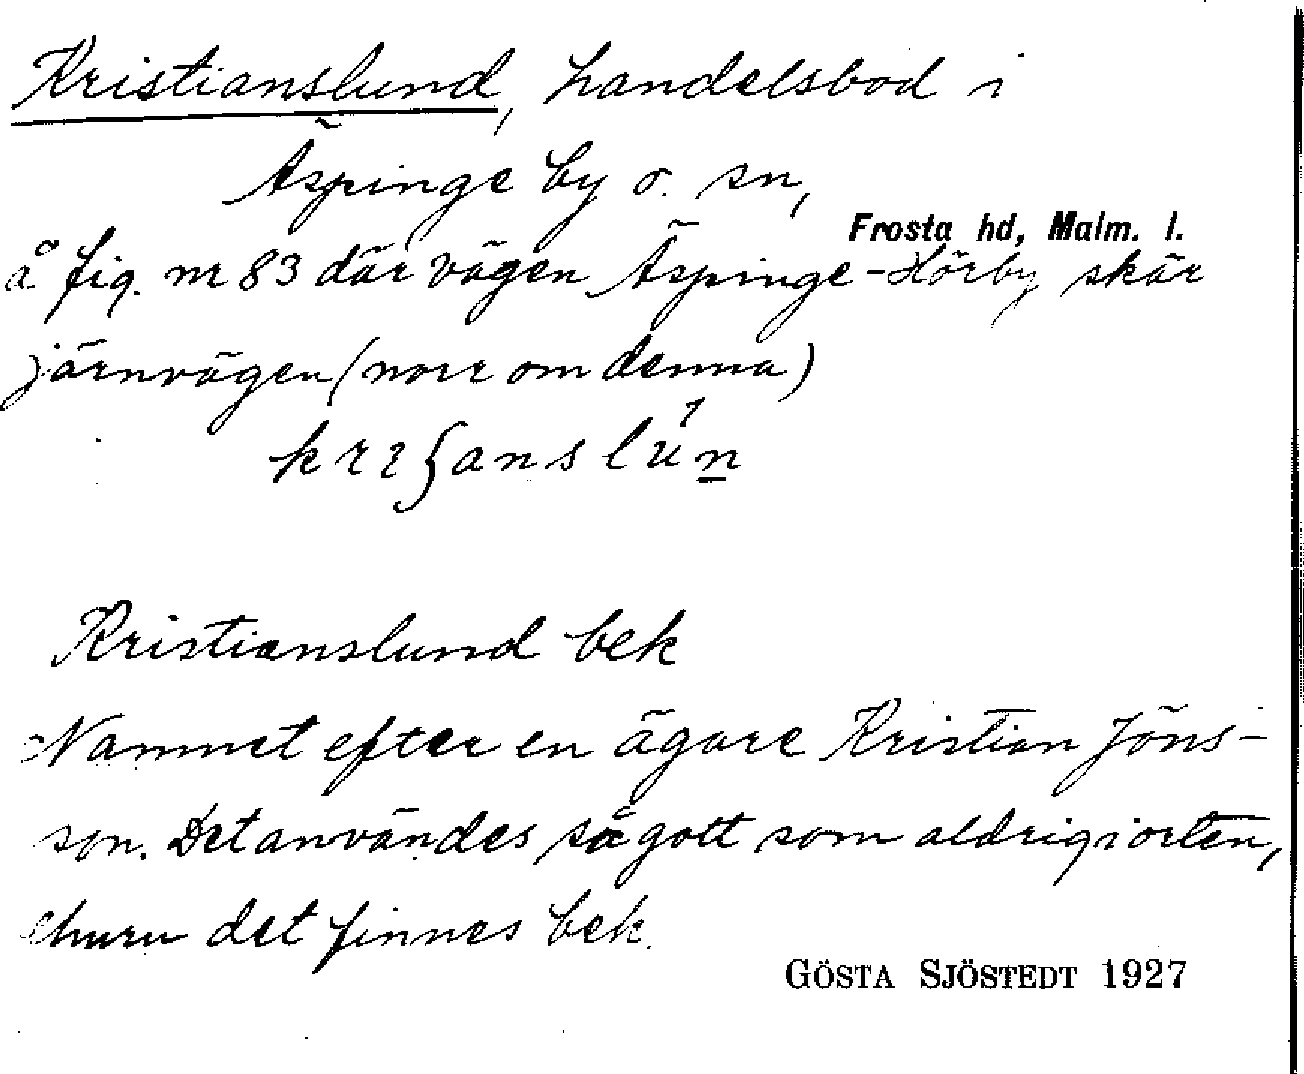 Kristianslund, handelsbod i
Äspinge by o. sn,
Frosta hd, Malm. l.
å fig. nr 83 där vägen Äspinge-Hörby skär
järnvägen (norr om denna)
Kristianslund bek
Namnet efter en ägare Kristian Jöns-
son. Det användes så gott som aldrig i orten,
ehuru det finnes bek.
GÖSTA SJÖSTEDT 1927